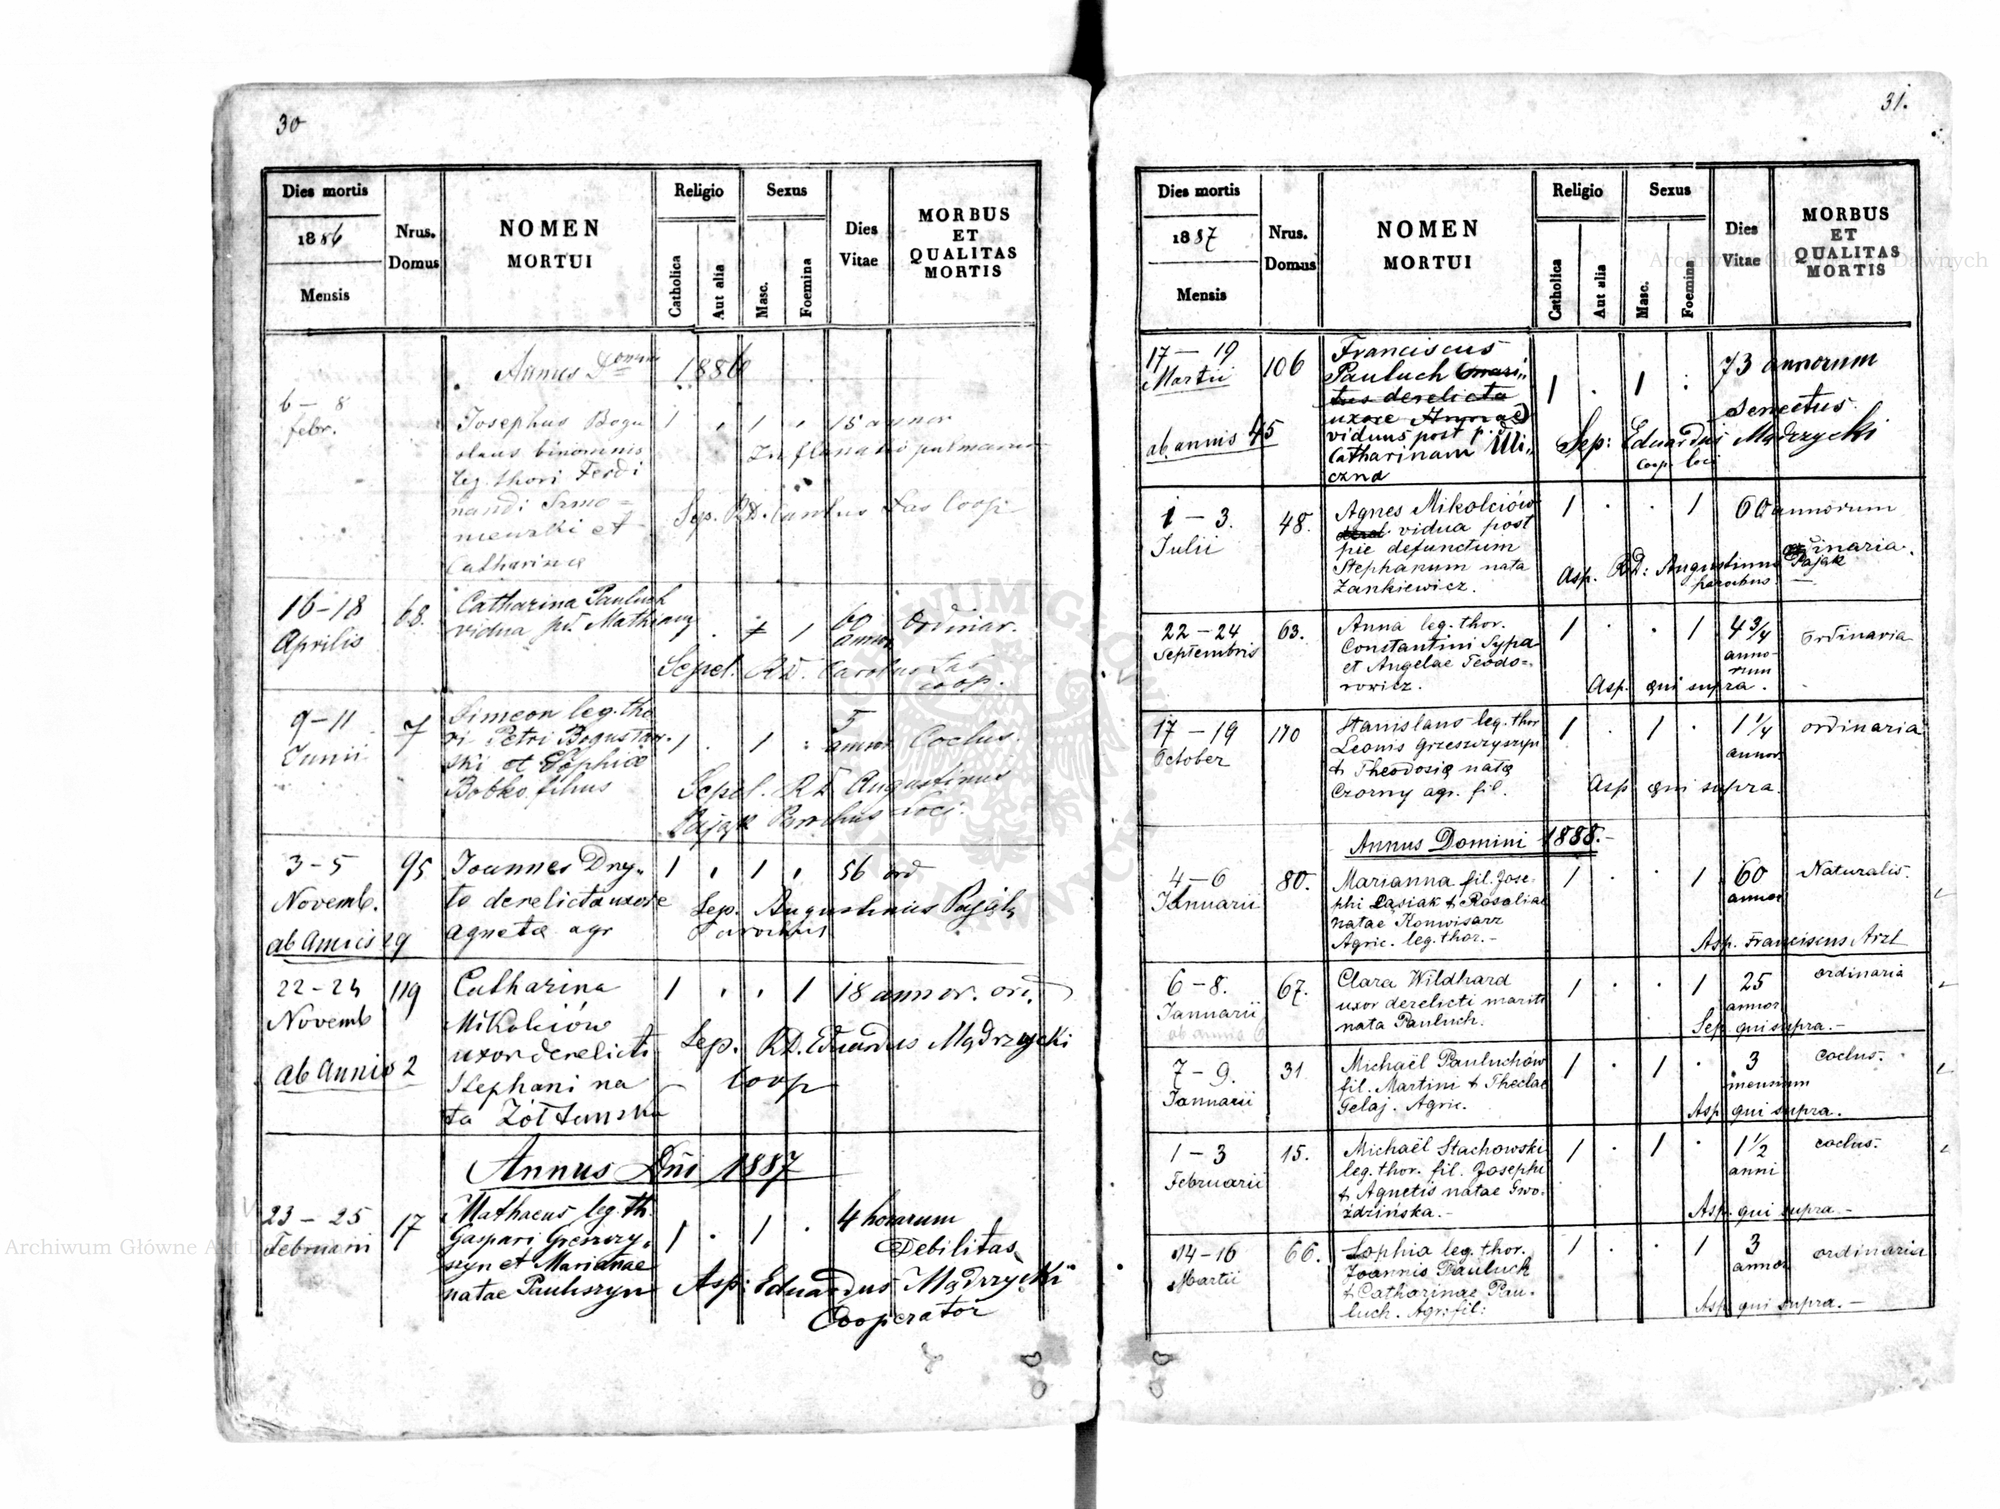 30
Dies mortis
1886
Mensis
Nrus.
Domus
NOMEN
MORTUI
Religio
Catholica
Aut alia
Sexus
Masc.
Foemina
Dies
Vitae
MORBUS
ET
QUALITAS
MORTIS
Annus Domini 1886
6 – 8
febr.
Josephus Bogu
slaus binominis
leg. thori Ferdi
nandi
et
Catharinae
1 . 1 . 15 annor
pulmonum
Sep. RD. Carolus Las Coop
16-18
Aprilis
68.
Catharina Pauluch
vidua p.d. Mathiam
1
60
annor
Ordinar.
Sepel. RD. Carolus Las
coop.
9-11
Junii
7
Simeon leg. tho
ri Petri Bogusław.
ski et Sophiae
Bobko filius
1 . 1 .
5
annor
Coclus.
Sepel. RD Augustinus
Pająk Parochus loci.
3-5
Novemb.
ab annis 29
95
Joannes Dry„
to derelicta uxore
Agneta agr
1 . 1 . 56 ord
Sep. Augustinus Pająk
Parochus
22-24
Novemb
ab annis 2
119
Catharina
Mikolciów
uxor derelicti
Stephani na
ta
1 . . 1 18 annor. ord.
Sep. RD. Eduardus Mądrzycki
Coop
Annus Dni 1887
23 – 25
Februarii
17
Mathaeus leg. th.
Gaspari Greszczy„
szyn et Marianae
natae Pauliszyn
1 . 1 .
4 horarum
Debilitas
Asp: Eduardus Mądrzycki
Cooperator
31.
Dies mortis
1887
Mensis
Nrus.
Domus
NOMEN
MORTUI
Religio
Catholica
Aut alia
Sexus
Masc.
Foemina
Dies
Vitae
MORBUS
ET
QUALITAS
MORTIS
17 – 19
Martii
ab annis 45
106
Franciscus
Pauluch (mari„
tus derelicta
uxore Annae)
viduus post p.d
Catharinam Uli„
czna
1 . 1 .
73 annorum
Senectus.
Sep: Eduardus Mądrzycki
Coop. loci
1 – 3.
Julii
48.
Agnes Mikolciów
derel. vidua post
pie defunctum
Stephanum nata
Zankiewicz.
1 . . 1
60 annorum
ordinaria.
Asp. RD: Augustinus Pająk
parochus
22 – 24
Septembris
63.
Anna leg. thor.
Constantini Sypa
et Angelae Teodo=
rowicz.
1 . . 1
4 3/4
anno-
rum
ordinaria
Asp. qui supra.
17 – 19
October
170
Stanislaus leg. thor
Leonis Grzeszczyszyn
& Theodosię natę
Czorny agr. fil.
1 . 1 .
1 1/4
annor.
ordinaria
Asp qui supra.
Annus Domini 1888.-
4 – 6
Januarii
80.
Marianna fil. Jose-
phi Lasiak & Rosaliae
natae Konwisarz
Agric. leg. thor. -
1 . . 1
60
annor
Naturalis.
Asp. Franciscus Arzt
6 – 8.
Januarii
67.
Clara Wildhard
uxor derelicti mariti
nata Pauluch.
1 . . 1
25
annor
ordinaria
Sep. qui supra. –
7 – 9.
Januarii
31
Michaël Pauluchów
fil. Martini & Theclae
Gelaj. Agric.
1 . 1 .
3
mensium
coclus.
Asp qui supra.
1 – 3
Februarii
15.
Michaël Stachowski
leg. thor. fil. Josephi
& Agnetis natae Gwo.
ździńska. -
1 . 1 .
1 1/2
anni
coclus.
Asp. qui supra. –
14 – 16
Martii
66.
Sophia leg. thor.
Joannis Pauluch
& Catharinae Pau-
luch. Agr: fil:
1 . . 1
3
annor
ordinaria
Asp. qui supra. –
Archiwum Główne Akt Dawnych